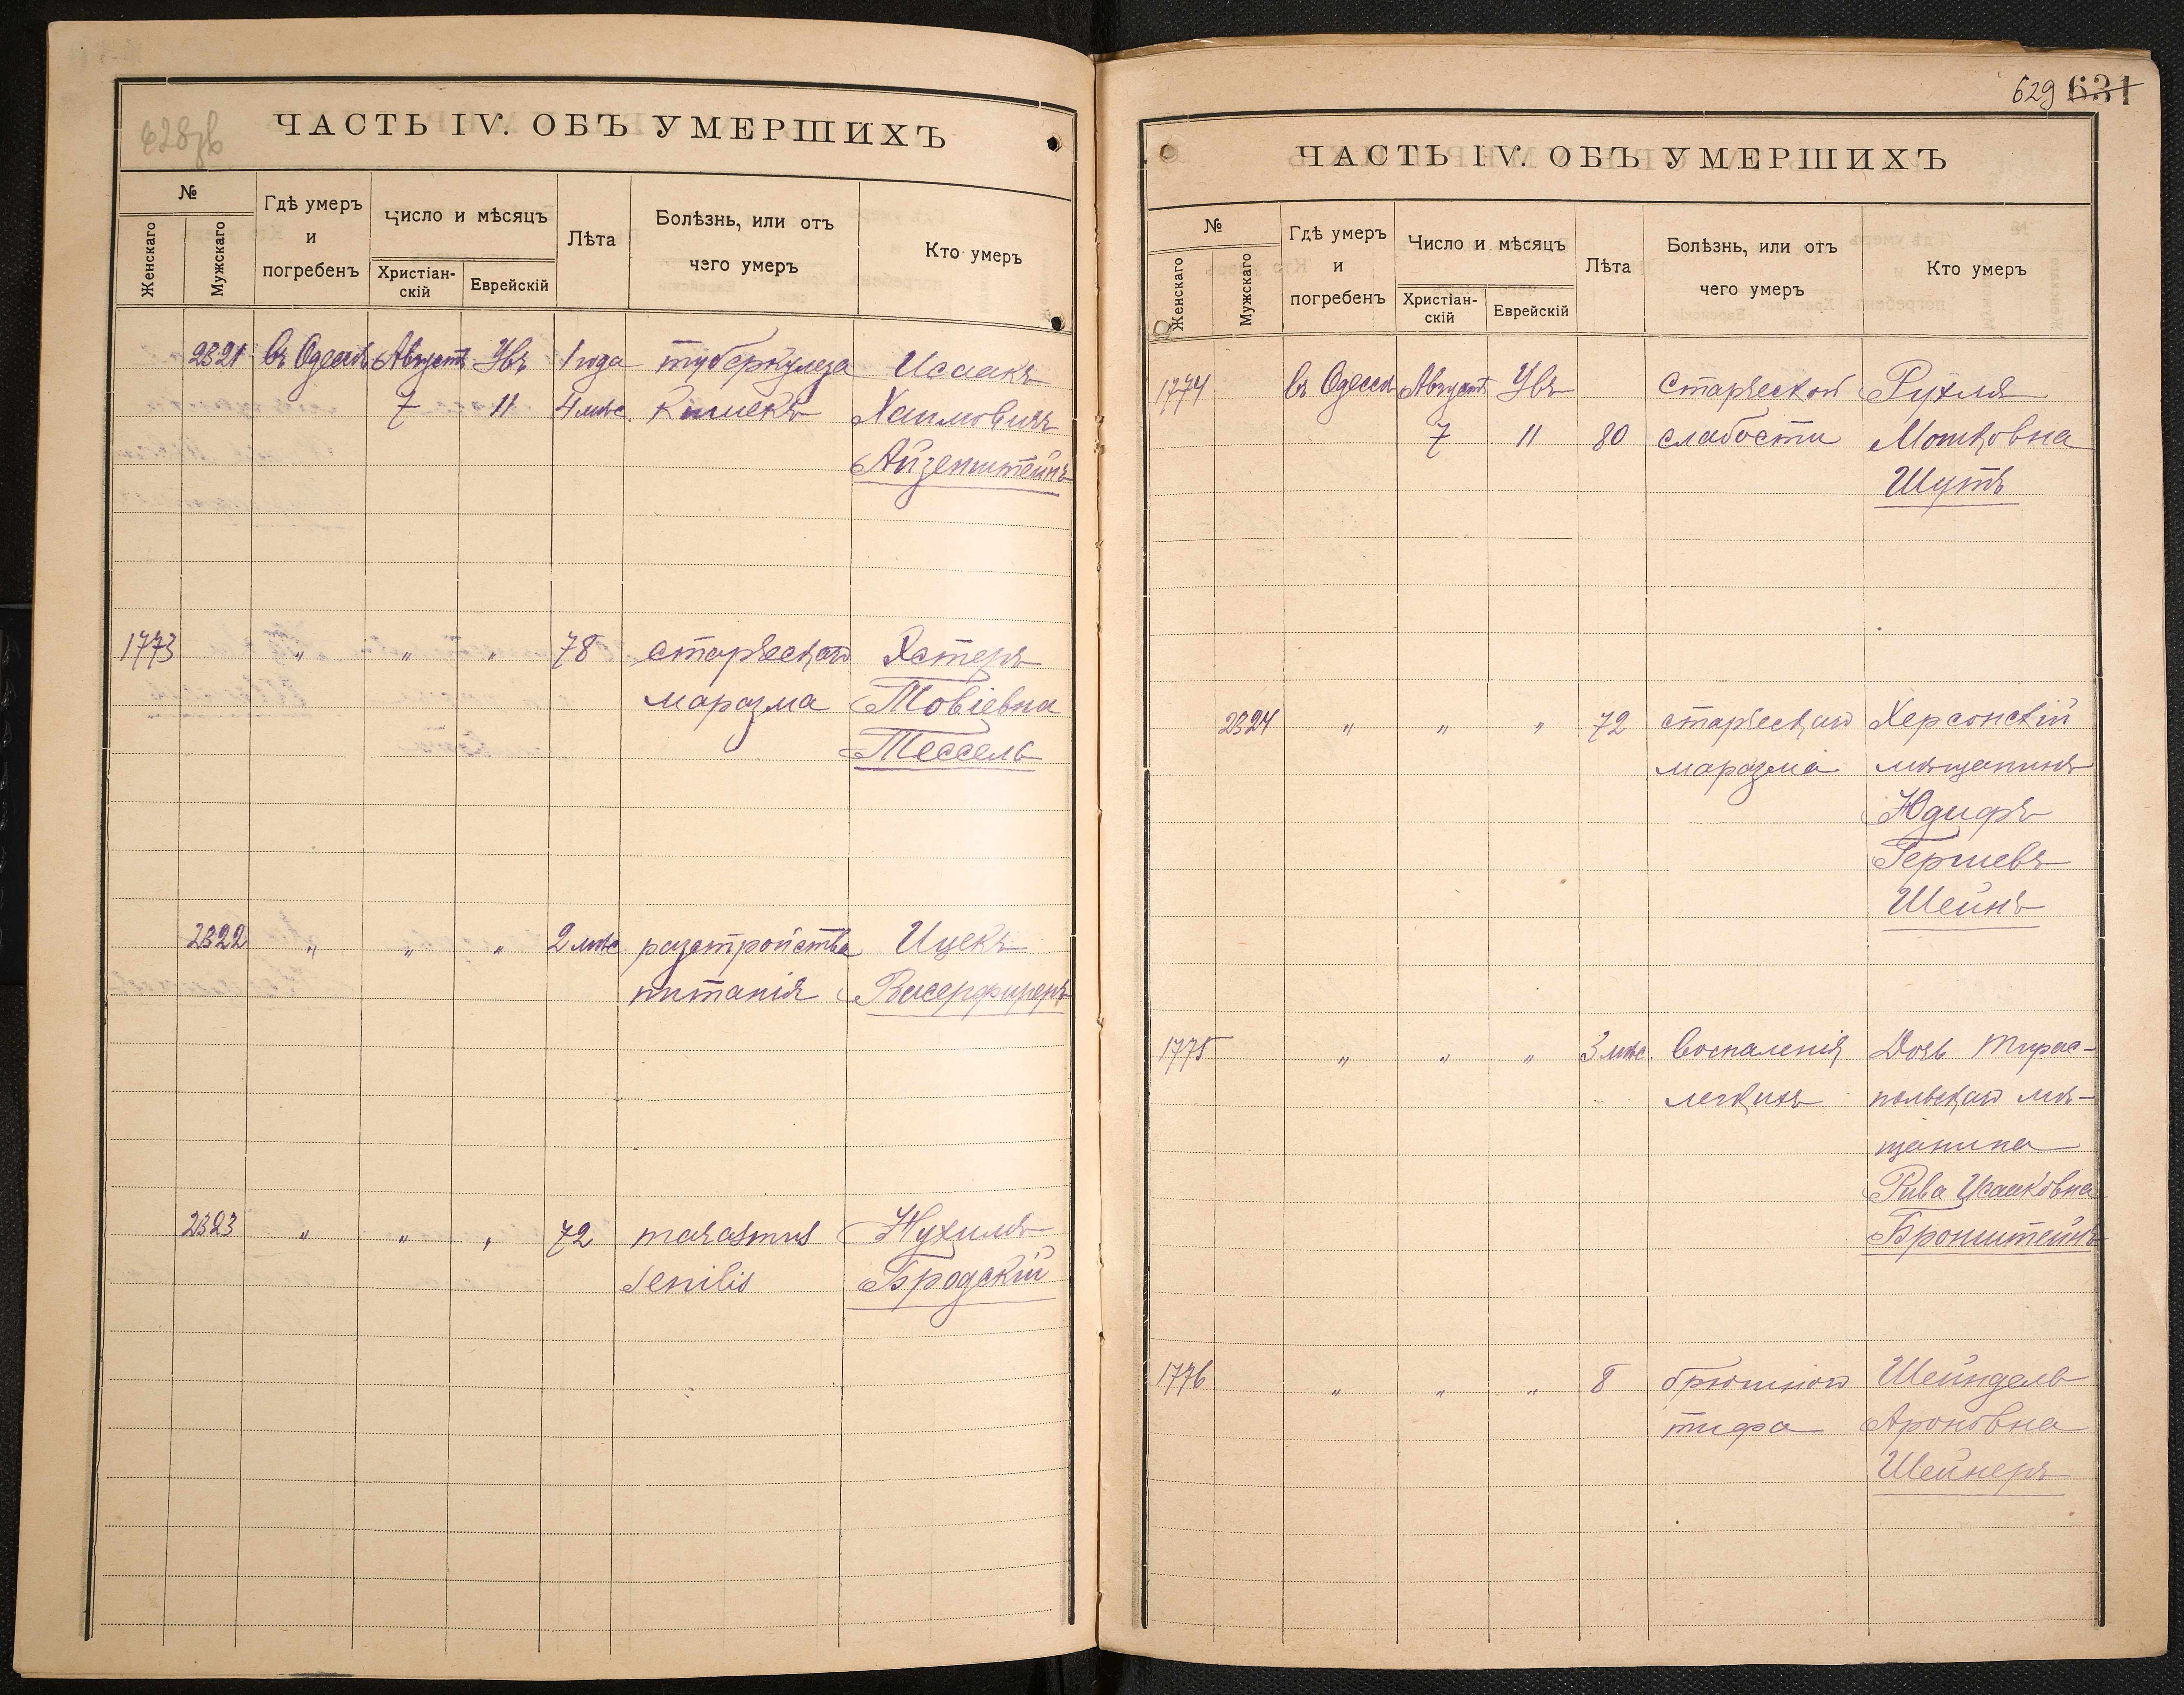 628 зв
ЧАСТЬ IV. ОБЪ УМЕРШИХЪ
№
Женскаго
Мужскаго
Гдѣ умеръ
и
погребенъ
Число и мѣсяцъ
Христіан-
скій
Еврейскій
Лѣта
Болѣзнь, или отъ
чего умеръ
Кто умеръ
2321 въ Одессѣ Августъ Увъ 1 года туберкулеза Исаакъ
7 11 4 мѣс. Кишекъ Хаимовичъ
Айзенштейнъ
1773 " " " 78 старческаго Эстеръ
маразма Товіевна
Тессель
2322 " " " 2 мѣс разстройства Ицекъ
питанія Васерфиреръ
2323 " " " 72 marasmus Нухимъ
senilis Бродскій
629 631
ЧАСТЬ IV. ОБЪ УМЕРШИХЪ
№
Женскаго
Мужскаго
Гдѣ умеръ
и
погребенъ
Число и мѣсяцъ
Христіан-
скій
Еврейскій
Лѣта
Болѣзнь, или отъ
чего умеръ
Кто умеръ
1774 въ Одессѣ Августъ Увъ Старческой Рухля
7 11 80 слабости Мошковна
Шутъ
2324 " " " 72 старческаго Херсонскій
маразма мѣщанинъ
Юдифъ
Гершевъ
Шейнъ
1775 " " " 3 мѣс. Воспаленія Дочь Тирас-
легкихъ польскаго мѣ-
щанина
Рива Исааковна
Бронштейнъ
1776 " " " 8 брюшного Шейндель
тифа Ароновна
Шейнеръ